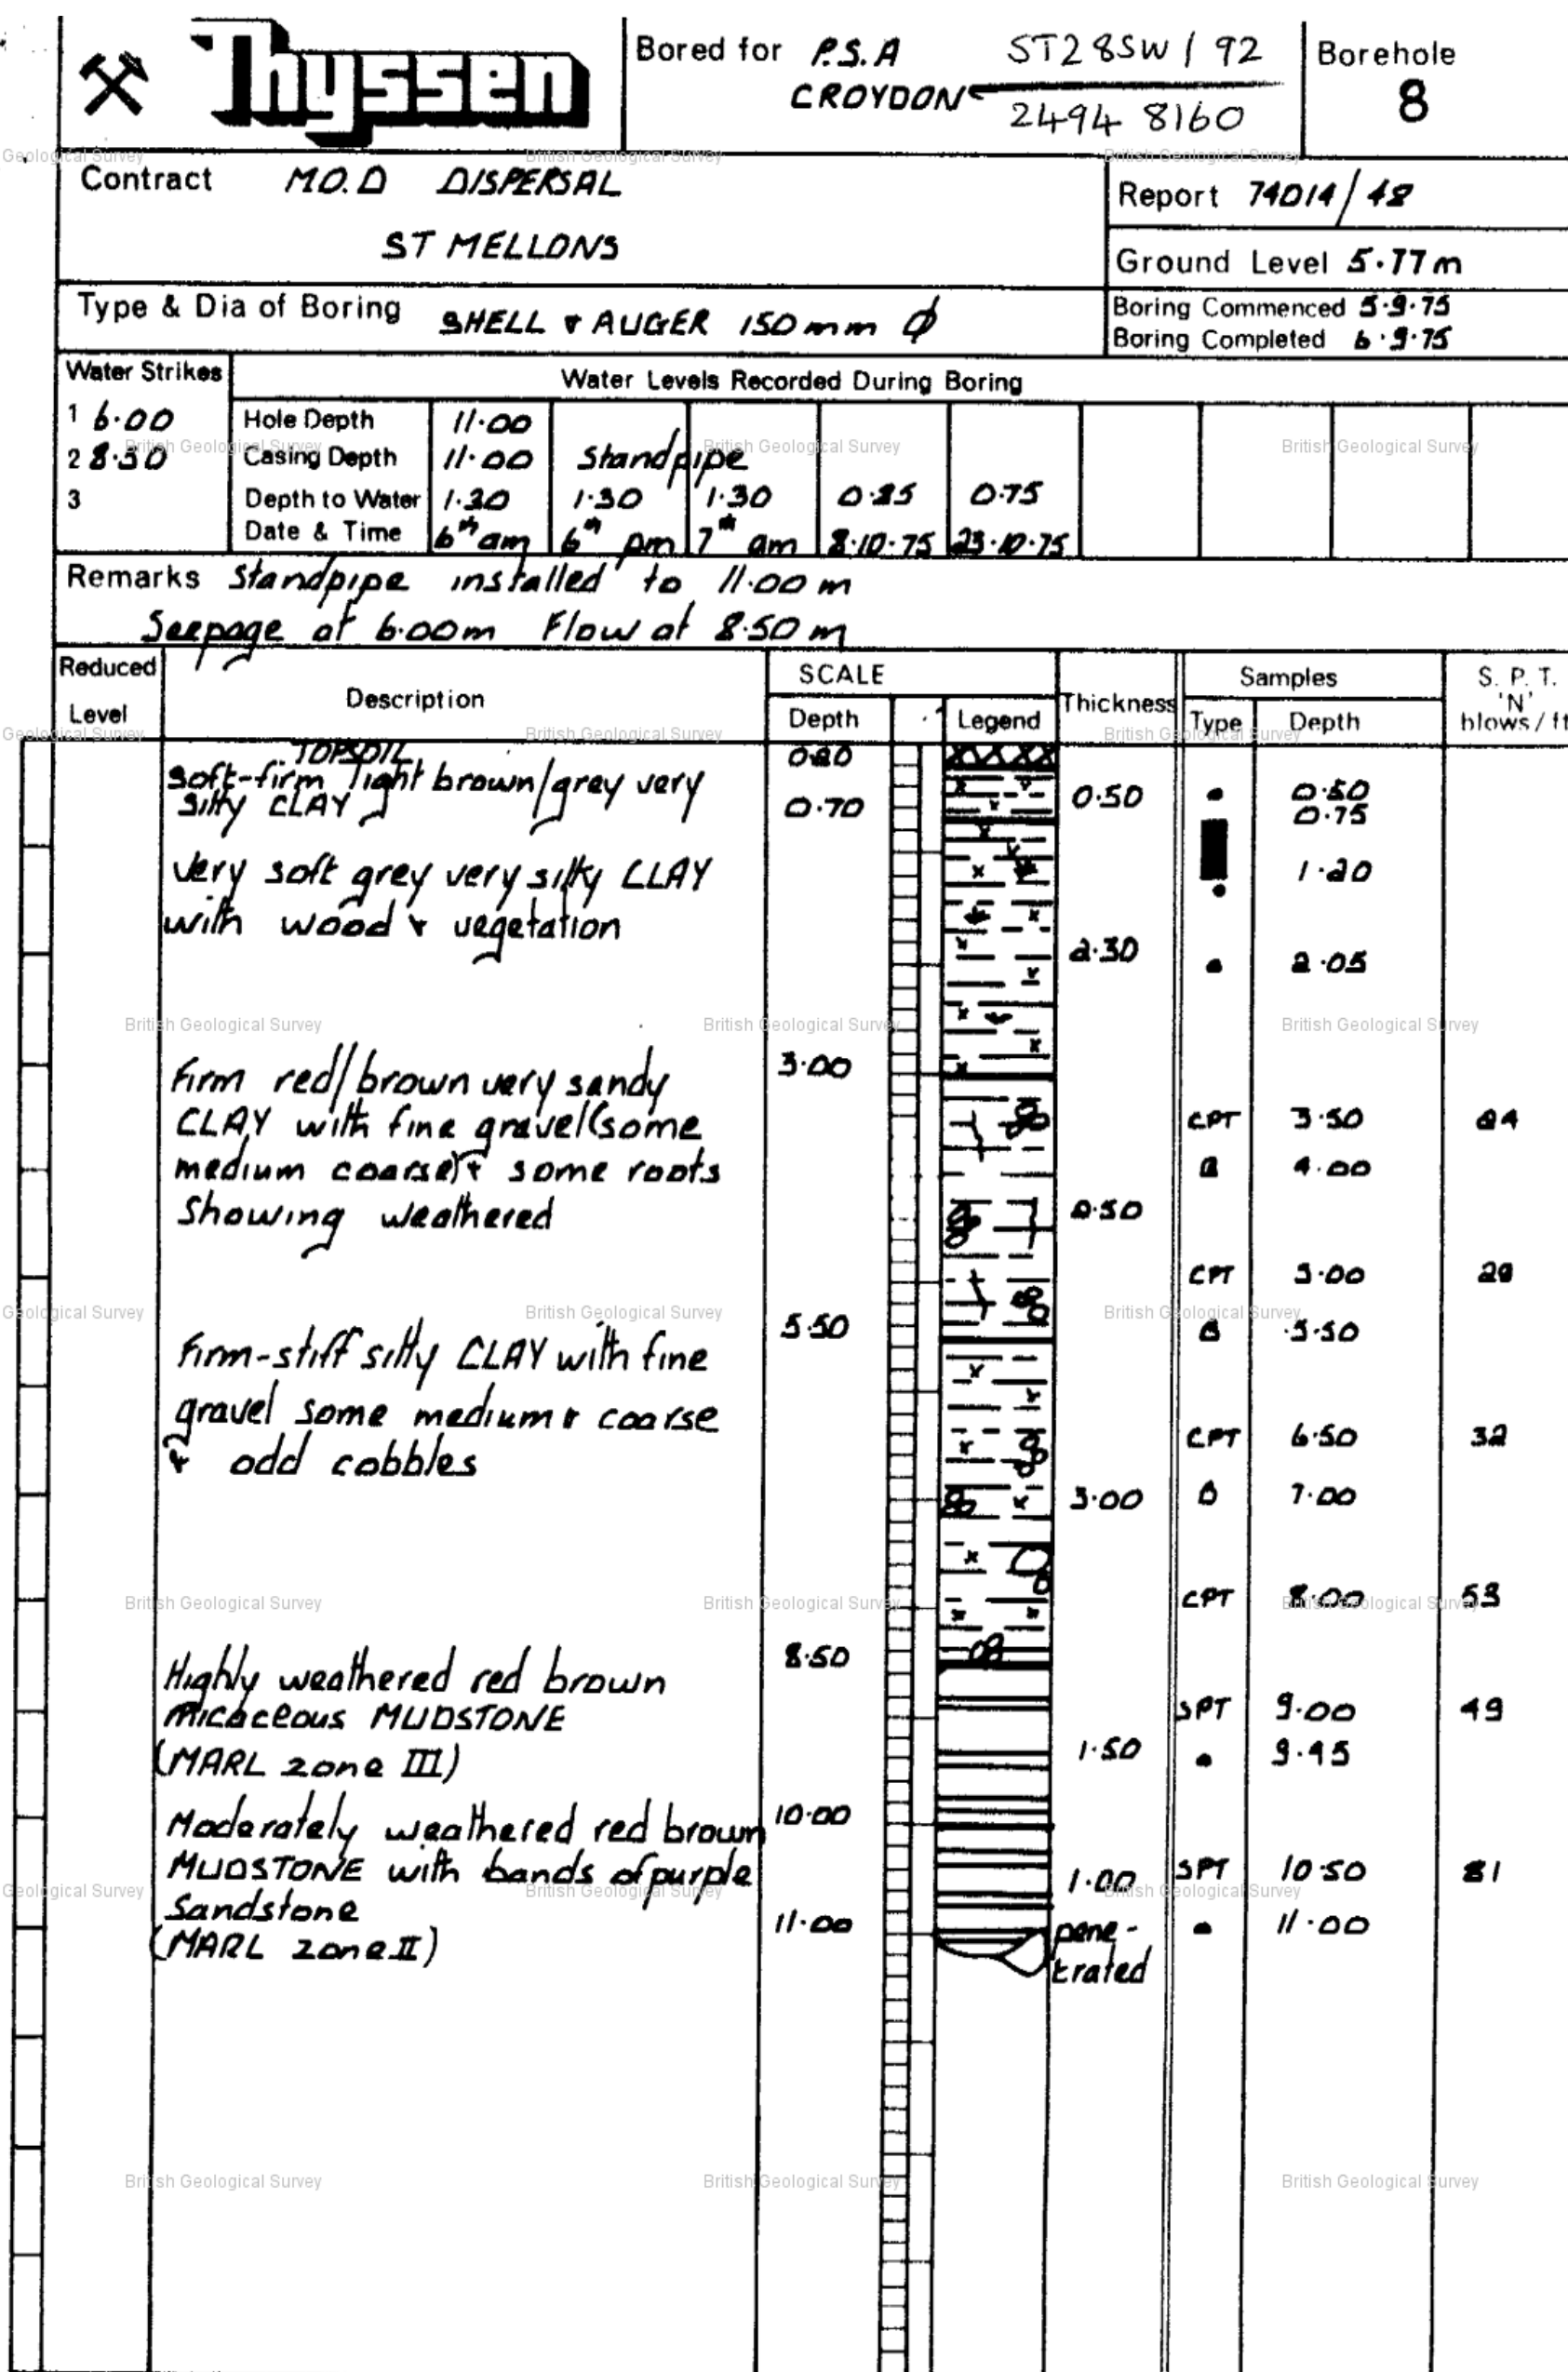 Thyssen
Bored for P.S.A
CROYDON
ST28SW / 92
2494 8160
Borehole
8
Contract M.O.D DISPERSAL
ST MELLONS
Report 74014/48
Ground Level 5.77m
Type & Dia of Boring SHELL & AUGER 150mm φ
Boring Commenced 5.9.75
Boring Completed 6.9.75
Water Strikes
Water Levels Recorded During Boring
1 6.00 Hole Depth 11.00
2 8.50 Casing Depth 11.00 Standpipe
3 Depth to Water 1.20 1.30 1.30 0.85 0.75
Date & Time 6th am 6th pm 7th am 8.10.75 23.10.75
Remarks Standpipe installed to 11.00 m
Seepage at 6.00m Flow at 8.50 m
Reduced Level
Description
SCALE
Depth
Legend
Thickness
Samples
Type
Depth
S. P. T.
'N'
blows/ft
TOPSOIL 0.20
Soft-firm light brown/grey very 0.50 0.50
silty CLAY 0.70 0.75
Very soft grey very silty CLAY 1.20
with wood & vegetation
2.30 2.05
3.00
Firm red/brown very sandy
CLAY with fine gravel(some CPT 3.50 24
medium coarse)& some roots B 4.00
Showing weathered 2.50
CPT 5.00 20
5.50 B 5.50
Firm-stiff silty CLAY with fine
gravel some medium & coarse
& odd cobbles CPT 6.50 32
3.00 B 7.00
CPT 8.00 53
8.50
Highly weathered red brown
Micaceous MUDSTONE SPT 9.00 49
(MARL zone III) 1.50 9.45
10.00
Moderately weathered red brown
MUDSTONE with bands of purple 1.00 SPT 10.50 81
Sandstone 11.00 pene- 11.00
(MARL zone II) trated
British Geological Survey